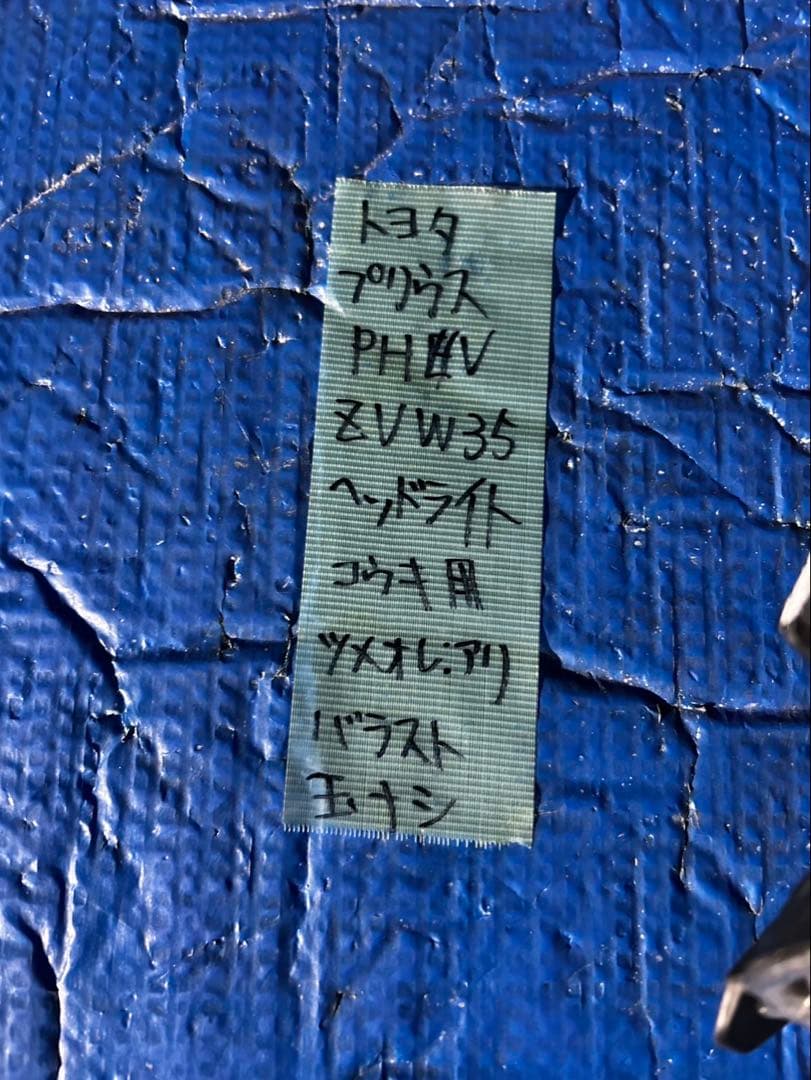 トヨタ
プリウス
PHV
ZVW35
ヘッドライト
コウキ用
ツメオレアリ
バラスト
玉ナシ